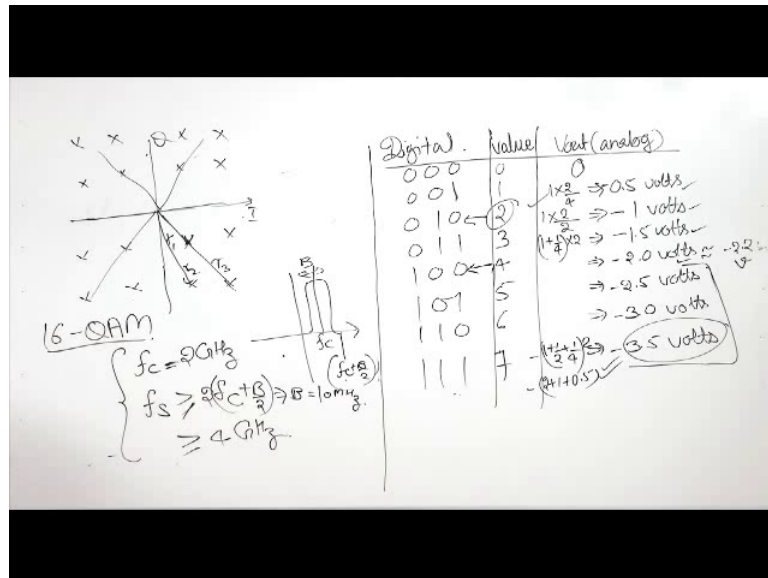 Q
I
r1
r2
r3
16-QAM
B
fc
(fc+B/2)
fc = 2GHz
fs ≥ 2(fc+B/2) ⇒ B = 10MHz
≥ 4 GHz
Digital. | Value | Vout (analog)
000 0 0
001 1 1×2/4 ⇒ -0.5 volts
010 ← 2 1×2/2 ⇒ -1 volts
011 3 (1+1/4)×2 ⇒ -1.5 volts
100 ← 4 ⇒ -2.0 volts ≈ -2.2
101 5 ⇒ -2.5 volts
110 6 ⇒ -3.0 volts
111 7 -(1+1/2+1/4)2 ⇒ -3.5 volts
-(2+1+0.5)